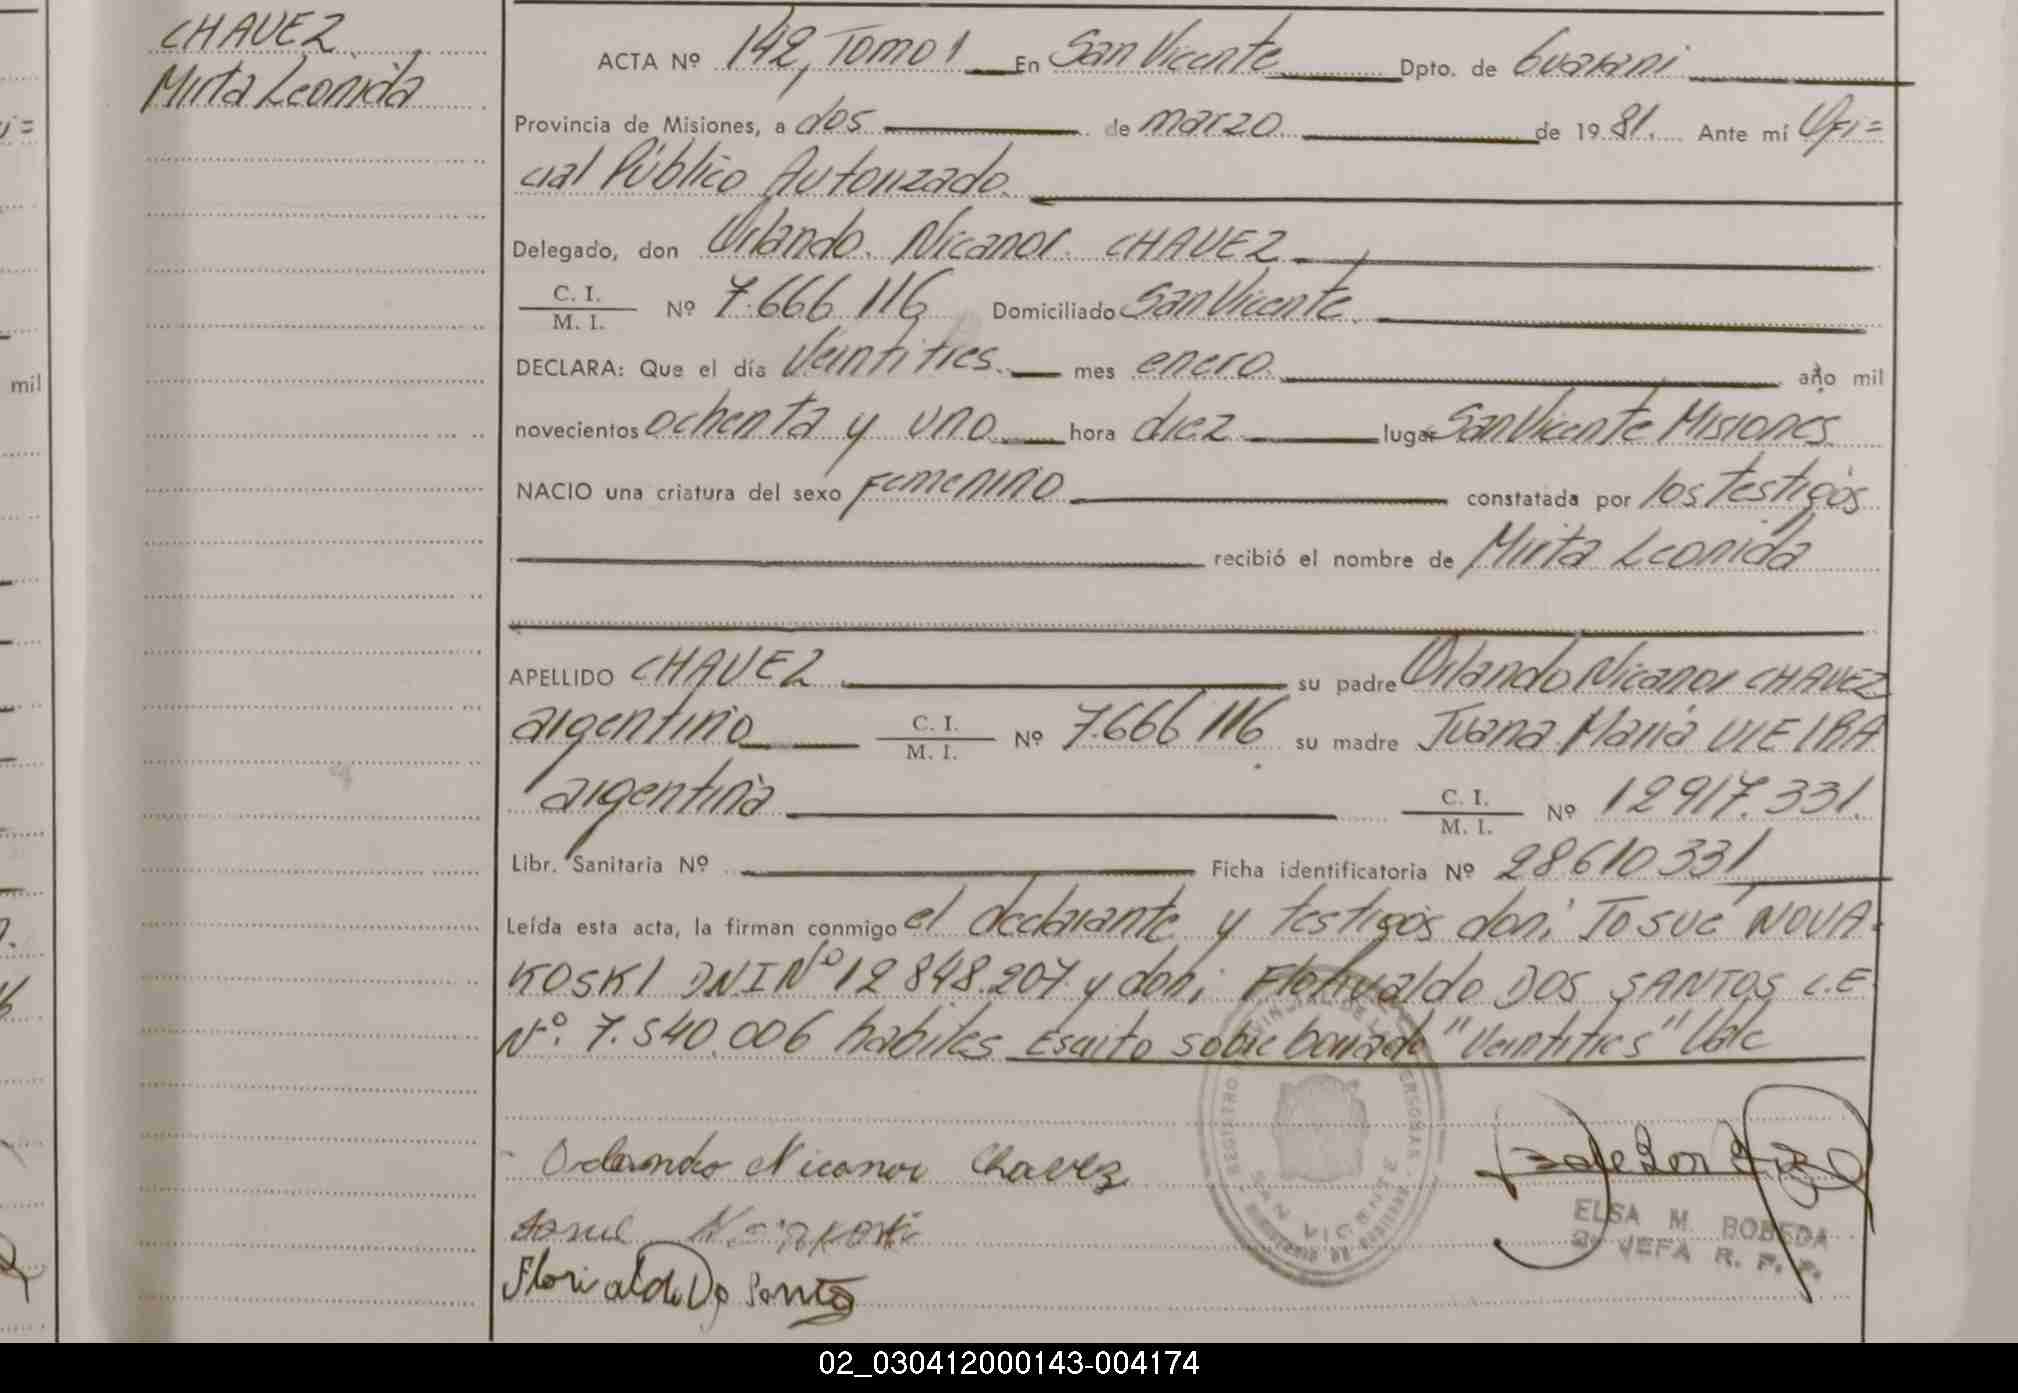 CHAVEZ
Mirta Leonida
ACTA Nº 142, Tomo 1 En San Vicente Dpto. de Guarani
Provincia de Misiones, a dos de marzo de 1981. Ante mí Ofi=
cial Público Autorizado
Delegado, don Orlando Nicanor CHAVEZ
C. I.
M. I. Nº 7.666 116 Domiciliado San Vicente
DECLARA: Que el día Veintitres mes enero año mil
novecientos ochenta y uno hora diez lugar San Vicente Misiones
NACIO una criatura del sexo Femenino constatada por los testigos
recibió el nombre de Mirta Leonida
APELLIDO CHAVEZ su padre Orlando Nicanor CHAVEZ
argentino C. I.
M. I. Nº 7.666 116 su madre Juana María VIEIRA
argentina C. I.
M. I. Nº 12917.331.
Libr. Sanitaria Nº Ficha identificatoria Nº 28610331
Leída esta acta, la firman conmigo el declarante y testigos don; Josué NOVA-
KOSKI DNI Nº 12 848.207 y don; Florivaldo DOS SANTOS C.E
Nº. 7.540.006 habiles Escrito sobre borrado "Veintitres" Vale
Orlando Nicanor Chavez
Florivaldo Do Santo
REGISTRO PROVINCIAL DE LAS PERSONAS
SAN VICENTE
ELSA M. BOBEDA
JEFA R. P. P.
mil
02_030412000143-004174